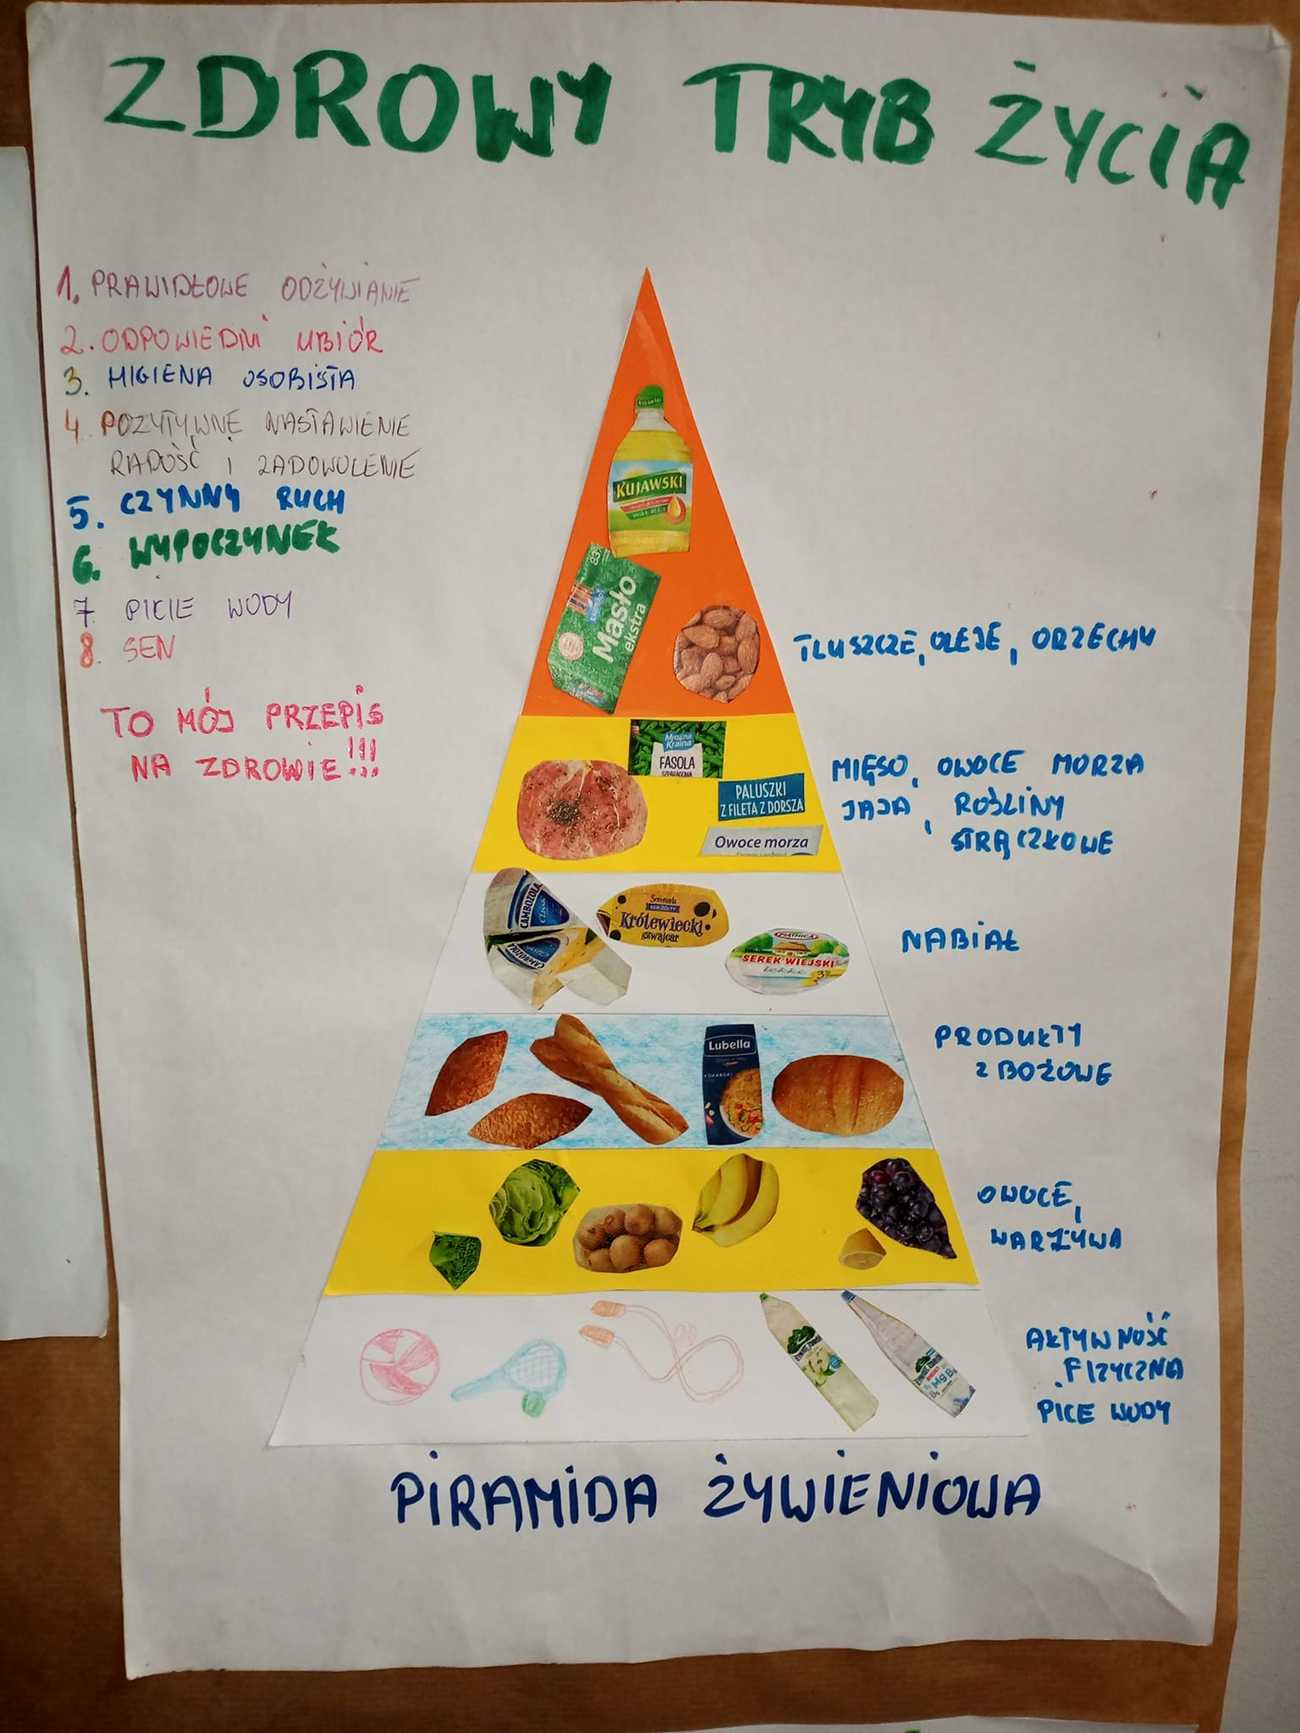 ZDROWY TRYB ŻYCIA
1. PRAWIDŁOWE ODŻYWIANIE
2. ODPOWIEDNI UBIÓR
3. HIGIENA OSOBISTA
4. POZYTYWNE NASTAWIENIE
RADOŚĆ I ZADOWOLENIE
5. CZYNNY RUCH
6. WYPOCZYNEK
7. PICIE WODY
8. SEN
TO MÓJ PRZEPIS
NA ZDROWIE!!!
KUJAWSKI
Masło
ekstra
TŁUSZCZE, OLEJE, ORZECHY
Mroźna
Kraina
FASOLA
SZPARAGOWA
PALUSZKI
Z FILETA Z DORSZA
Owoce morza
MIĘSO, OWOCE MORZA
JAJA, ROŚLINY
STRĄCZKOWE
CAMBOZOLA
Królewiecki
szwajcar
PIĄTNICA
SEREK WIEJSKI
NABIAŁ
Lubella
PRODUKTY
ZBOŻOWE
OWOCE,
WARZYWA
Mg B6
AKTYWNOŚĆ
FIZYCZNA
PICE WODY
PIRAMIDA ŻYWIENIOWA